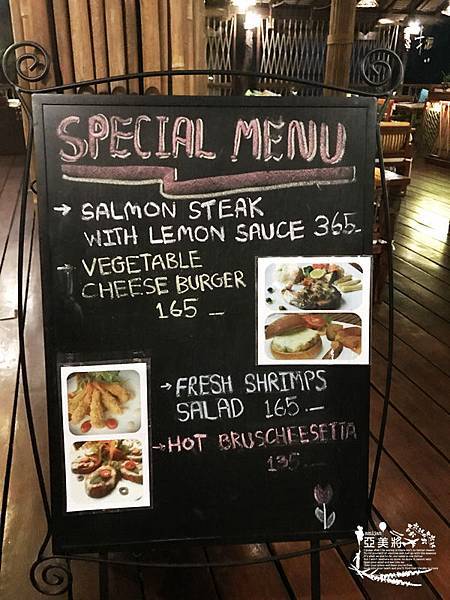 SPECIAL MENU
→ SALMON STEAK
WITH LEMON SAUCE 365.-
→ VEGETABLE
CHEESE BURGER
165 —
→ FRESH SHRIMPS
SALAD 165.—
→ HOT BRUSCHEESETTA
135 —
亞美將